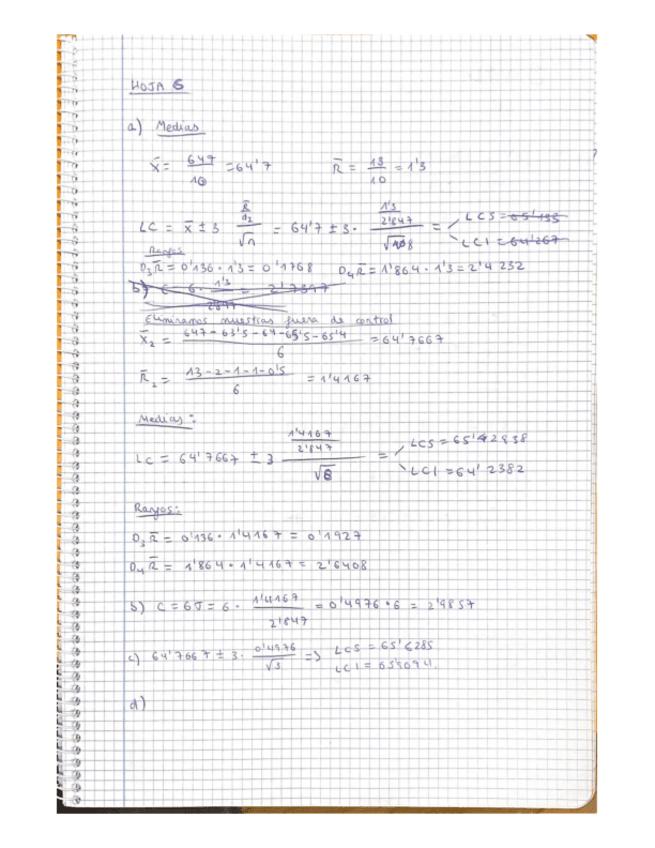 HOJA 6
a) Medias
X̄ = 647/10 = 64'7 R̄ = 13/10 = 1'3
LC = X̄ ± 3 (R̄/d2)/√n = 64'7 ± 3· (1'3/2'847)/√8 = LCS = 65'185
LCI = 64'267
Rangos
D3 R̄ = 0'136 · 1'3 = 0'1768 D4 R̄ = 1'864 · 1'3 = 2'4232
b) C = 6· 1'3/2847 = 2'7397
Eliminamos muestras fuera de control
X̄2 = (647 - 63'5 - 64 - 65'5 - 65'4)/6 = 64'7667
R̄2 = (13 - 2 - 1 - 1 - 0'5)/6 = 1'4167
Medias:
LC = 64'7667 ± 3 (1'4167/2'847)/√8 = LCS = 65'2938
LCI = 64'2382
Rangos:
D3 R̄ = 0'136 · 1'4167 = 0'1927
D4 R̄ = 1'864 · 1'4167 = 2'6408
b) C = 6σ = 6 · 1'4167/2'847 = 0'4976 · 6 = 2'9857
c) 64'7667 ± 3· 0'4976/√3 => LCS = 65'6285
LCI =
d)